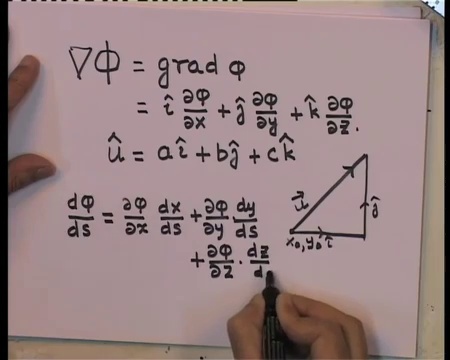 ∇Φ = grad φ
= î ∂φ/∂x + ĵ ∂φ/∂y + k̂ ∂φ/∂z.
û = aî + bĵ + ck̂
dφ/ds = ∂φ/∂x dx/ds + ∂φ/∂y dy/ds
+ ∂φ/∂z · dz/d
u⃗
ĵ
x₀, y₀ î